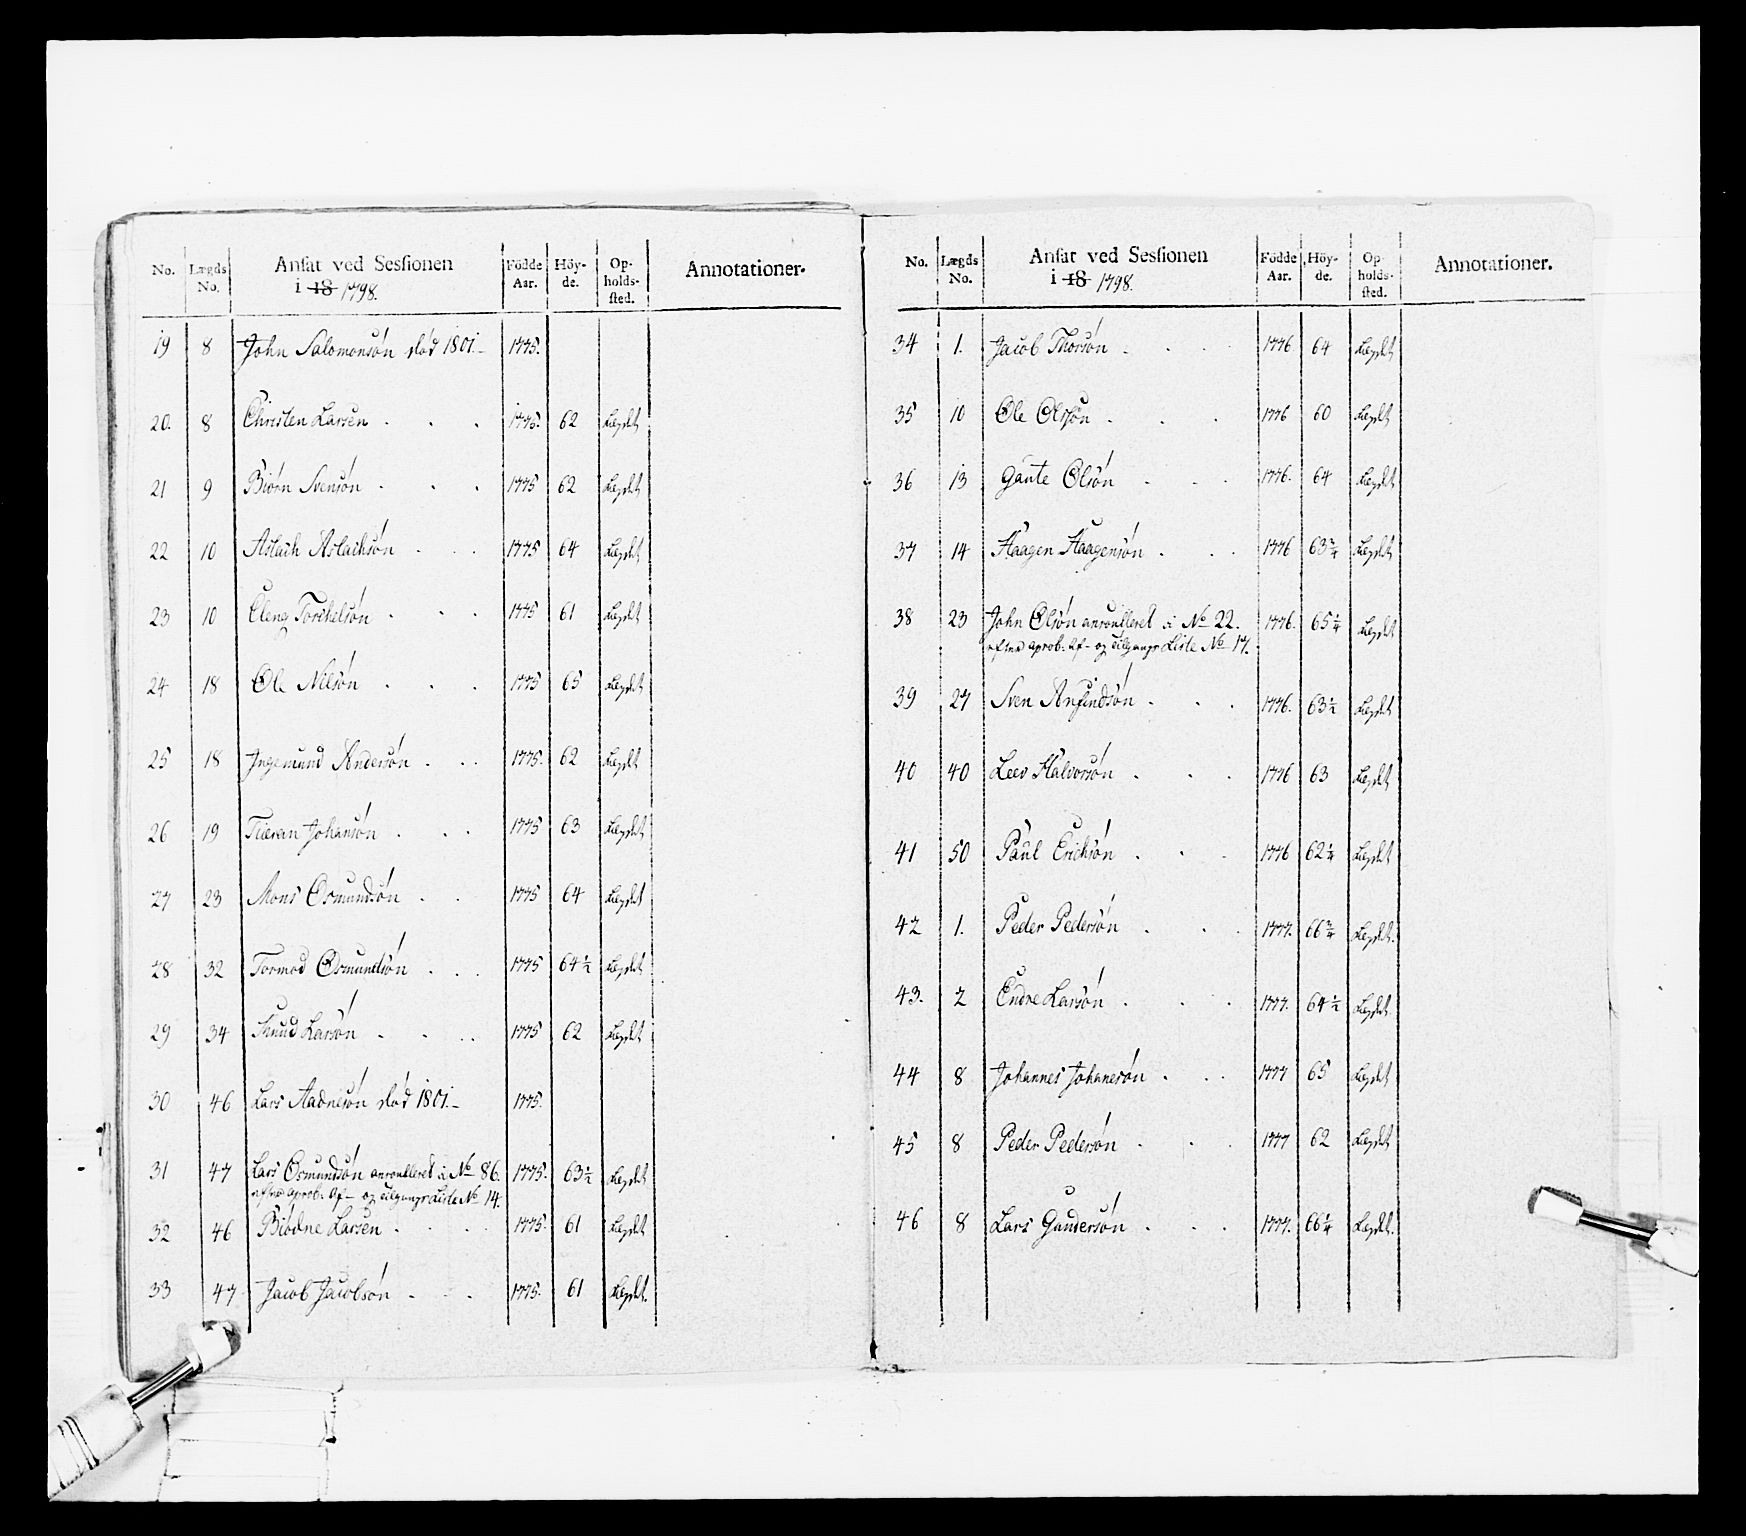 No. Lægds No. Ansat ved Sessionen i 18 1798. Födde Aar. Höy-de. Op-holds-sted. Annotationer.
19 8 John Salomonsøn død 1801.- 1775.
20. 8 Christen Larsen . . . 1775. 62 Legdet
21 9 Biørn Svensøn . . . 1775 62 Legdet
22 10 Aslach Aslachsøn . . . 1775 64 Legdet
23 10 Eleng Torchelsøn . . . 1775 61 Legdet
24 18 Ole Nilsøn . . . 1775 65 Legdet
25 18 Ingemund Andersøn . . . 1775. 62 Legdet
26 19 Johansøn . . . 1775 63 Legdet
27 23 Mons Osmundsøn . . 1775 64 Legdet
28 32 Tormod Osmundsøn . . . 1775 64½ Legdet
29 34 Knud Larsøn . . . . 1775 62 Legdet
30 46 Lars Aadnesøn død 1801.- 1775.
31 47 Lars Osmundsøn anroulleret i No 86. 1775. 63½ Legdet
efter aprob. Af- og tilgangs Liste No 14.
32 46 Biødne Larsen . . . . 1775. 61 Legdet
33 47 Jacob Jacobsøn . . . 1775. 61 Legdet.
No. Lægds No. Ansat ved Sessionen i 18 1798. Födde Aar. Höy-de. Op-holds-sted. Annotationer.
34 1. Jacob Thorsøn . . . . 1776 64 Legdet
35 10 Ole Olsøn . . . 1776 60 Legdet
36 13 Gaute Olsøn . . . 1776. 64 Legdet
37 14 Haagen Haagensøn . . . 1776 63¾ Legdet
38 23 John Olsøn anroulleret i No 22. 1776. 65¼ Legdet
efter aprob. Af- og tilgangs Liste No 17.
39 27 Sven Anfindsøn . . . 1776. 63½ Legdet
40 40 Leev Halvorsøn . . . 1776 63 Legdet
41 50 Paul Erichsøn . . . 1776 62¼ Legdet
42 1. Peder Pedersøn . . . 1777. 66¾ Legdet.
43. 2 Endre Larsøn . . . 1777. 64½ Legdet.
44 8 Johannes Johanesøn . . . 1777 65 Legdet
45 8 Peder Pedersøn . . . 1777 62 Legdet
46 8 Lars Gundersøn . . . 1777. 66¼ Legdet.